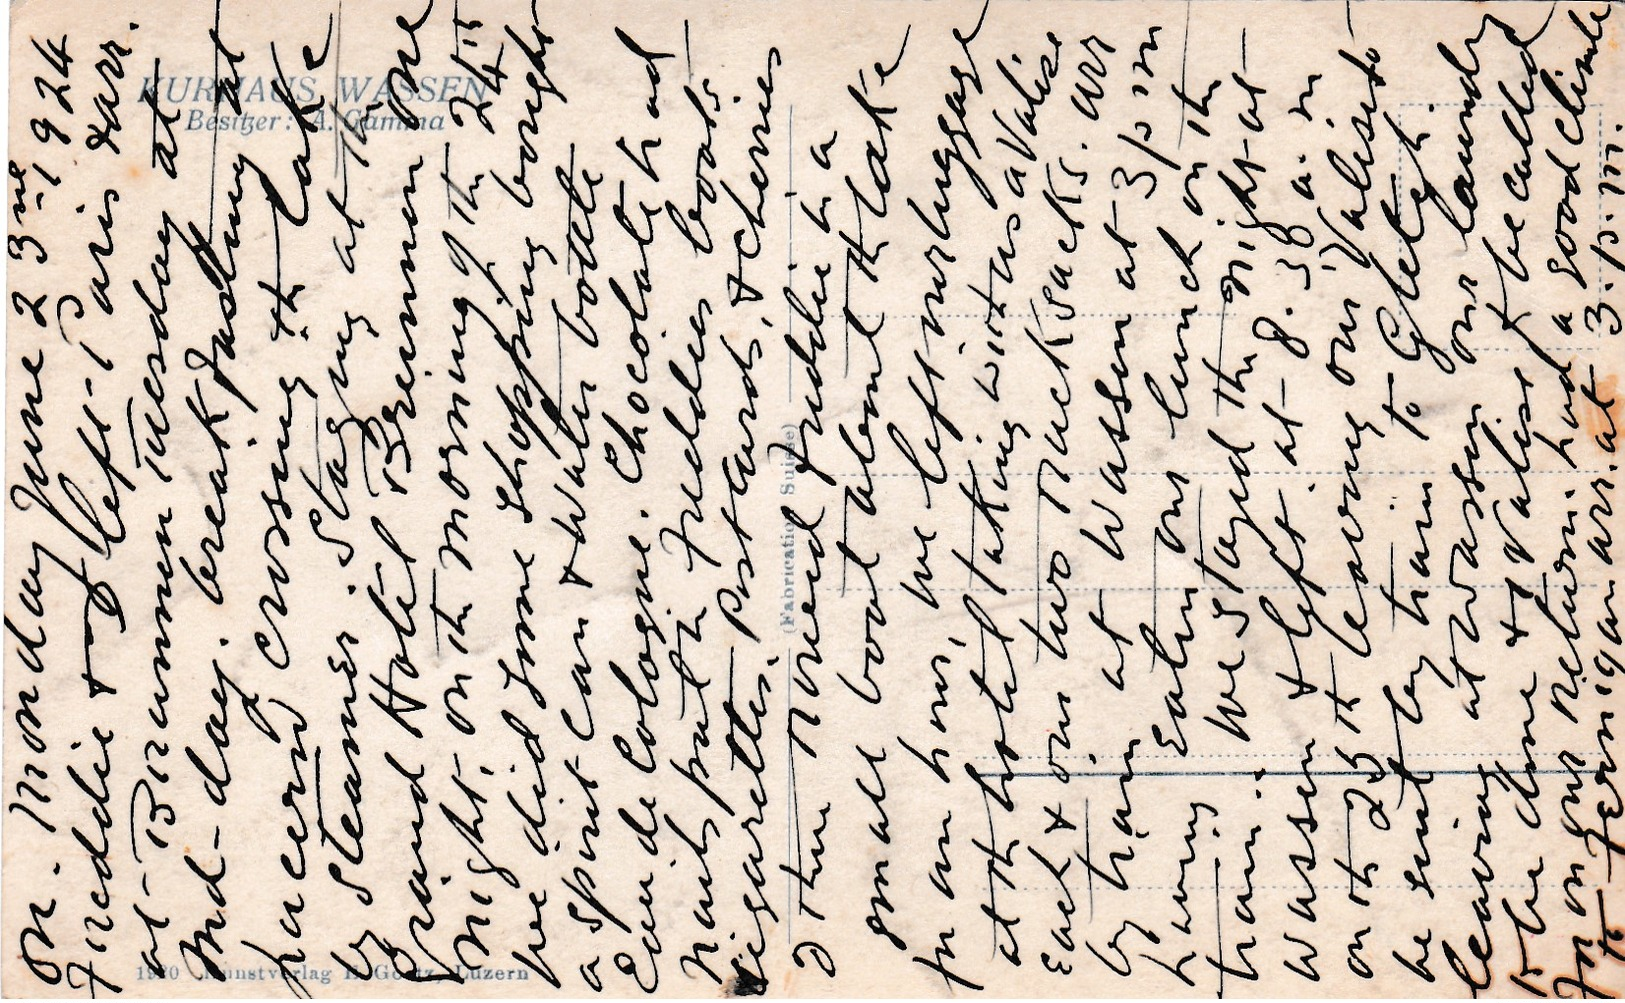 KURHAUS WASSEN
Besitzer: A. Gamma
(Fabrication Suisse)
Kunstverlag E. Goetz, Luzern
On. Monday June 23rd 1924
Freddie & I left Paris & arr.
at Brunnen Tuesday at
Mid-day. breakfasting at
Lucerne crossing the Lake
by Steamer. Staying at the
Grand Hotel Brunnen one
Night. on the morning of the 24th
we did some shopping bought
a spirit can & water bottle
Eau de Cologne. Chocolate had
nails put in Freddies boots
cigarettes. Postcards, & cherries
I then rowed Freddie in a
small boat about the Lake
for an hour, we left our luggage
at the hotel taking with us a Valise
Each & our two Rucksacks. arr
by train at Wassen at 3 pm
having Eaten our lunch on the
train. We stayed the night at
Wassen & left at 8.30 a.m
on the 25th leaving our Valises to
be sent by train to Gletsch.
leaving at Wassen our laundry
to be done & Valise to be called
for on our return. had a good climb
to Fernigan arr. at 3. p.m.